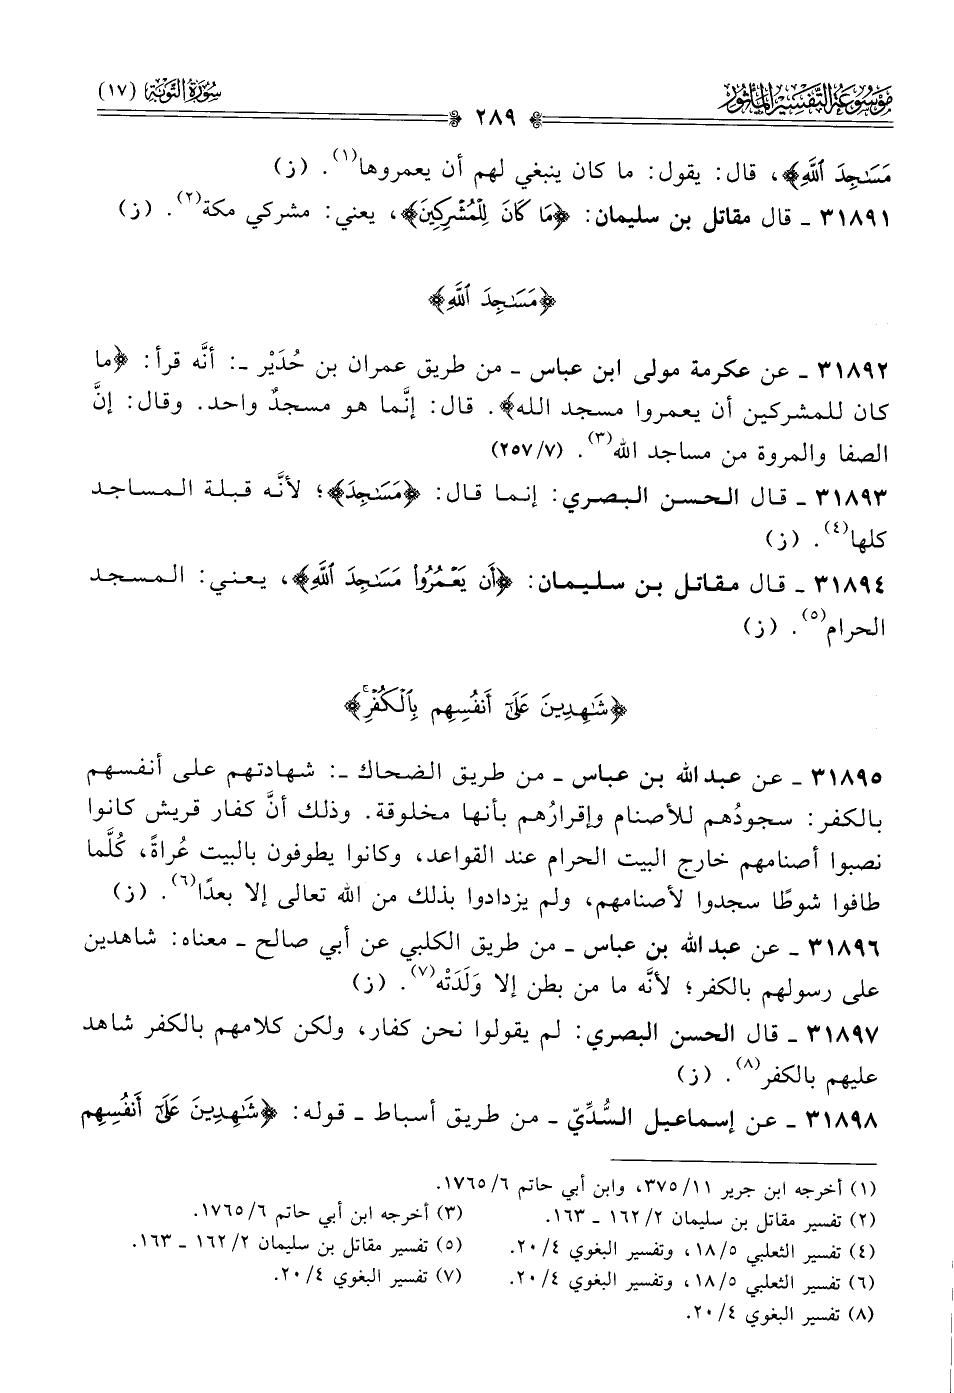 مَوْسُوعَةُ التَّفْسِيرِ المَأْثُورِ
سُورَةُ التَّوْبَةِ (١٧)
٢٨٩
مَسَٰجِدَ ٱللَّهِ﴾، قال: يقول: ما كان ينبغي لهم أن يعمروها(١). (ز)
٣١٨٩١ ـ قال مقاتل بن سليمان: ﴿مَا كَانَ لِلْمُشْرِكِينَ﴾، يعني: مشركي مكة(٢). (ز)
﴿مَسَٰجِدَ ٱللَّهِ﴾
٣١٨٩٢ ـ عن عكرمة مولى ابن عباس ـ من طريق عمران بن حُدَيْر ـ: أنَّه قرأ: ﴿ما
كان للمشركين أن يعمروا مسجد الله﴾. قال: إنَّما هو مسجدٌ واحد. وقال: إنَّ
الصفا والمروة من مساجد الله(٣). (٢٥٧/٧)
٣١٨٩٣ ـ قال الحسن البصري: إنما قال: ﴿مَسَٰجِدَ﴾؛ لأنَّه قبلة المساجد
كلها(٤). (ز)
٣١٨٩٤ ـ قال مقاتل بن سليمان: ﴿أَن يَعْمُرُوا۟ مَسَٰجِدَ ٱللَّهِ﴾، يعني: المسجد
الحرام(٥). (ز)
﴿شَٰهِدِينَ عَلَىٰٓ أَنفُسِهِم بِٱلْكُفْرِ﴾
٣١٨٩٥ ـ عن عبد الله بن عباس ـ من طريق الضحاك ـ: شهادتهم على أنفسهم
بالكفر: سجودُهم للأصنام وإقرارُهم بأنها مخلوقة. وذلك أنَّ كفار قريش كانوا
نصبوا أصنامهم خارج البيت الحرام عند القواعد، وكانوا يطوفون بالبيت عُراةً، كُلَّما
طافوا شوطًا سجدوا لأصنامهم، ولم يزدادوا بذلك من الله تعالى إلا بعدًا(٦). (ز)
٣١٨٩٦ ـ عن عبد الله بن عباس ـ من طريق الكلبي عن أبي صالح ـ معناه: شاهدين
على رسولهم بالكفر؛ لأنَّه ما من بطن إلا وَلَدَتْه(٧). (ز)
٣١٨٩٧ ـ قال الحسن البصري: لم يقولوا نحن كفار، ولكن كلامهم بالكفر شاهد
عليهم بالكفر(٨). (ز)
٣١٨٩٨ ـ عن إسماعيل السُّدِّيّ ـ من طريق أسباط ـ قوله: ﴿شَٰهِدِينَ عَلَىٰٓ أَنفُسِهِم
(١) أخرجه ابن جرير ٣٧٥/١١، وابن أبي حاتم ١٧٦٥/٦.
(٢) تفسير مقاتل بن سليمان ١٦٢/٢ ـ ١٦٣. (٣) أخرجه ابن أبي حاتم ١٧٦٥/٦.
(٤) تفسير الثعلبي ١٨/٥، وتفسير البغوي ٢٠/٤. (٥) تفسير مقاتل بن سليمان ١٦٢/٢ ـ ١٦٣.
(٦) تفسير الثعلبي ١٨/٥، وتفسير البغوي ٢٠/٤. (٧) تفسير البغوي ٢٠/٤.
(٨) تفسير البغوي ٢٠/٤.